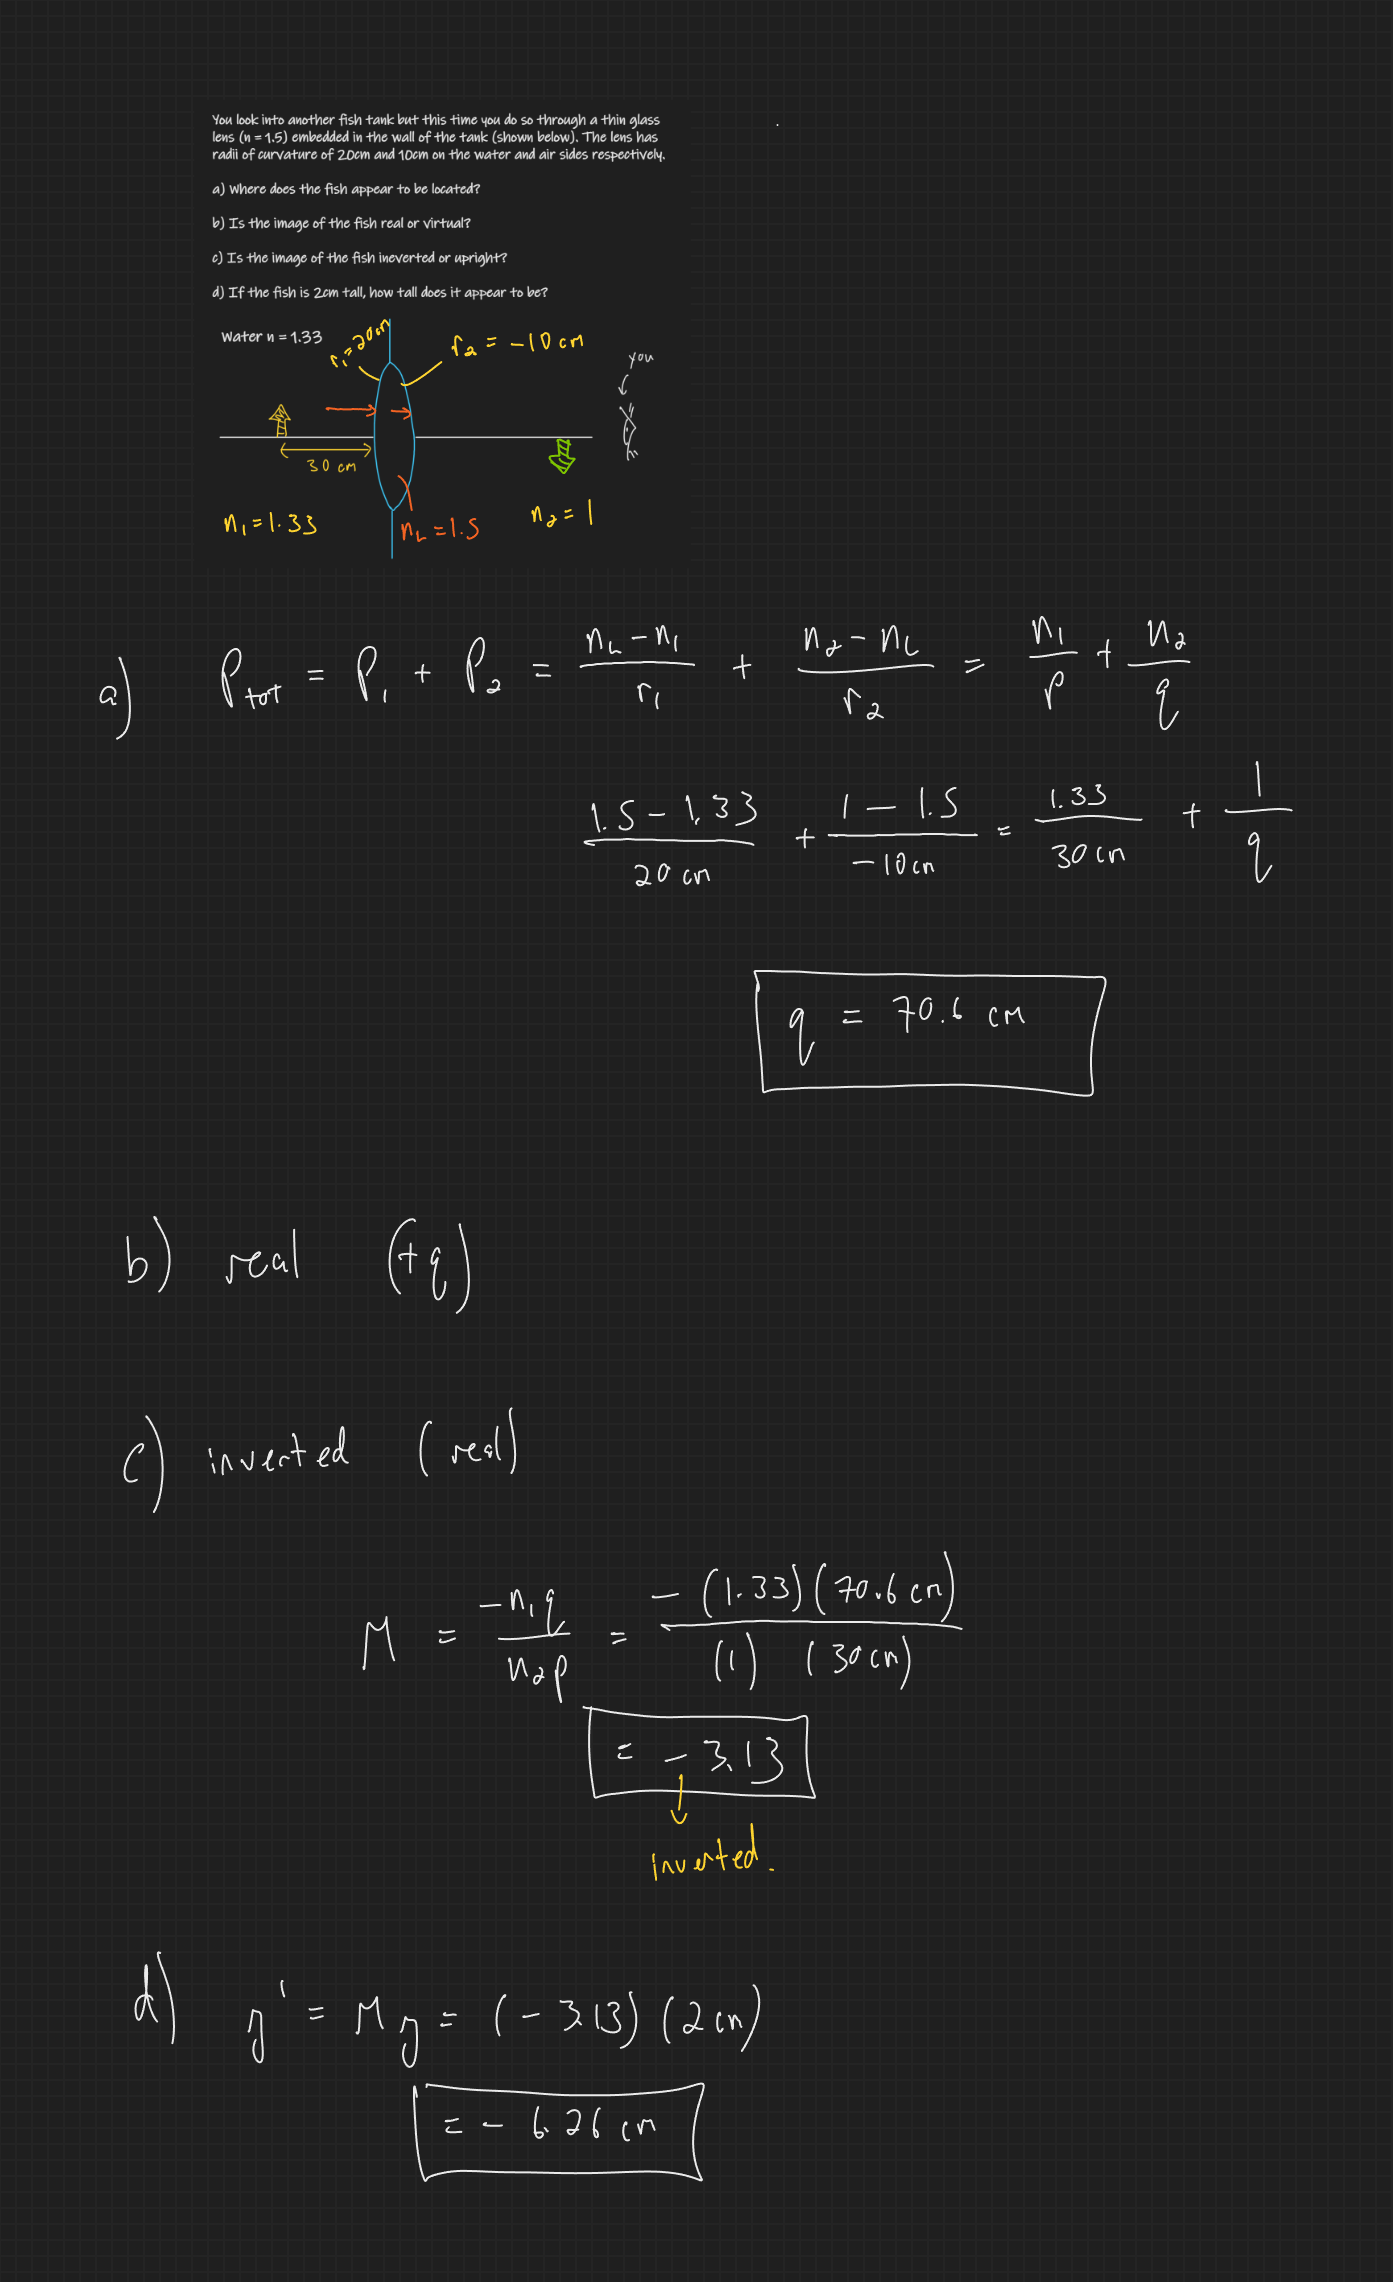 You look into another fish tank but this time you do so through a thin glass
lens (n = 1.5) embedded in the wall of the tank (shown below). The lens has
radii of curvature of 20cm and 10cm on the water and air sides respectively.
a) Where does the fish appear to be located?
b) Is the image of the fish real or virtual?
c) Is the image of the fish ineverted or upright?
d) If the fish is 2cm tall, how tall does it appear to be?
Water n = 1.33
r₁ = 20cm
r₂ = -10 cm
you
30 cm
n₁ = 1.33
n_L = 1.5
n₂ = 1
a) P_tot = P₁ + P₂ = (n_L - n₁)/r₁ + (n₂ - n_L)/r₂ = n₁/p + n₂/q
(1.5 - 1.33)/20 cm + (1 - 1.5)/-10 cm = 1.33/30 cm + 1/q
q = 70.6 cm
b) real (+q)
c) inverted (real)
M = -n₁q/n₂p = -(1.33)(70.6 cm)/(1)(30 cm)
= -3.13
inverted.
d) y' = My = (-3.13)(2 cm)
= -6.26 cm